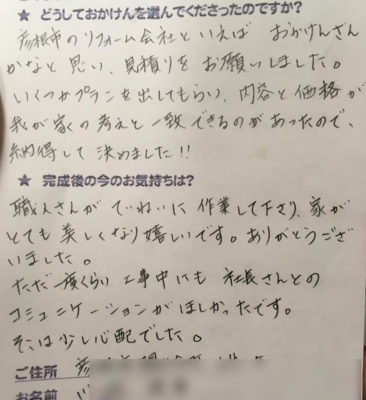 ★ どうしておかけんを選んでくださったのですか?
彦根市のリフォーム会社といえば おかけんさん
かなと思い、見積りをお願いしました。
いくつかプランを出してもらい、内容と価格が
我が家の考えと一致できるのがあったので、
納得して決めました!!
★ 完成後の今のお気持ちは?
職人さんが ていねいに 作業して下さり、家が
とても美しくなり嬉しいです。ありがとうござ
いました。
ただ一度くらい 工事中にも 社長さんとの
コミュニケーションがほしかったです。
そこは少し心配でした。
ご住所 彦
お名前